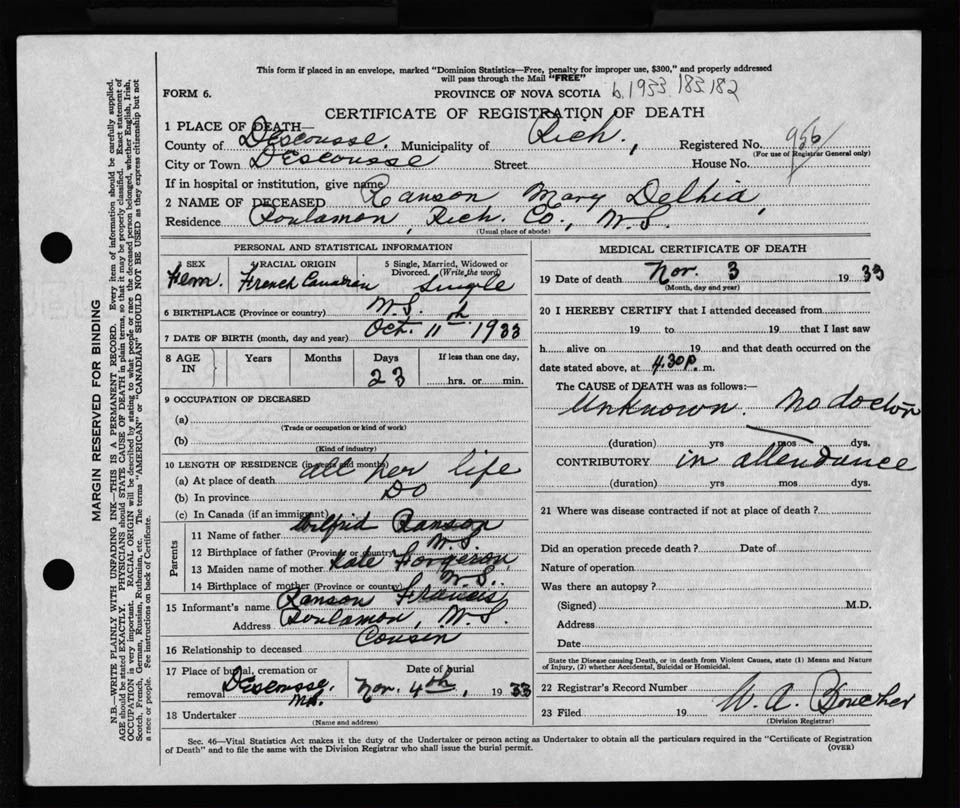 This form if placed in an envelope, marked "Dominion Statistics—Free, penalty for improper use, $300," and properly addressed
will pass through the Mail "FREE"
FORM 6. PROVINCE OF NOVA SCOTIA b.1933.183.182
CERTIFICATE OF REGISTRATION OF DEATH
1 PLACE OF DEATH—
County of Descousse. Municipality of Rich. , Registered No. 956
(For use of Registrar General only)
City or Town Descousse Street House No.
If in hospital or institution, give name
2 NAME OF DECEASED Ranson Mary Delhia,
Residence Poulamon, Rich. Co., N.S.
(Usual place of abode)
PERSONAL AND STATISTICAL INFORMATION
SEX Fem. RACIAL ORIGIN French Canadian 5 Single, Married, Widowed or Divorced. (Write the word) Single
6 BIRTHPLACE (Province or country) N.S.
7 DATE OF BIRTH (month, day and year) Oct. 11th, 1933
8 AGE IN Years Months Days 23 If less than one day, hrs. or min.
9 OCCUPATION OF DECEASED
(a)
(Trade or occupation or kind of work)
(b)
(Kind of industry)
10 LENGTH OF RESIDENCE (in years and months)
(a) At place of death all her life
(b) In province Do
(c) In Canada (if an immigrant)
Parents
11 Name of father Wilfrid Ranson
12 Birthplace of father (Province or country) N.S.
13 Maiden name of mother Kate Forgeron
14 Birthplace of mother (Province or country) N.S.
15 Informant's name Ranson Francis
Address Poulamon, N.S.
16 Relationship to deceased Cousin
17 Place of burial, cremation or removal Descousse, Date of burial Nov. 4th, 1933
18 Undertaker
(Name and address)
MEDICAL CERTIFICATE OF DEATH
19 Date of death Nov. 3 1933
(Month, day and year)
20 I HEREBY CERTIFY that I attended deceased from
19 to 19 that I last saw
h alive on 19 and that death occurred on the
date stated above, at 4.30 p. m.
The CAUSE of DEATH was as follows:—
Unknown. No doctor
(duration) yrs mos dys.
CONTRIBUTORY in attendance
(duration) yrs mos dys.
21 Where was disease contracted if not at place of death?
Did an operation precede death? Date of
Nature of operation
Was there an autopsy?
(Signed) M.D.
Address
Date
State the Disease causing Death, or in death from Violent Causes, state (1) Means and Nature
of Injury, (2) whether Accidental, Suicidal or Homicidal.
22 Registrar's Record Number
23 Filed 19 W. A. Boucher
(Division Registrar)
Sec. 46—Vital Statistics Act makes it the duty of the Undertaker or person acting as Undertaker to obtain all the particulars required in the "Certificate of Registration
of Death" and to file the same with the Division Registrar who shall issue the burial permit. (OVER)
MARGIN RESERVED FOR BINDING
N.B.—WRITE PLAINLY WITH UNFADING INK—THIS IS A PERMANENT RECORD. Every item of information should be carefully supplied.
AGE should be stated EXACTLY. PHYSICIANS should STATE CAUSE OF DEATH in plain terms, so that it may be properly classified. Exact statement of
OCCUPATION is very important. RACIAL ORIGIN will be described by stating to what people or race the deceased person belonged, whether English, Irish,
Scotch, French, German, Russian, Ruthenian, etc. The terms "AMERICAN" or "CANADIAN" SHOULD NOT BE USED as they express citizenship but not
a race or people. See instructions on back of Certificate.